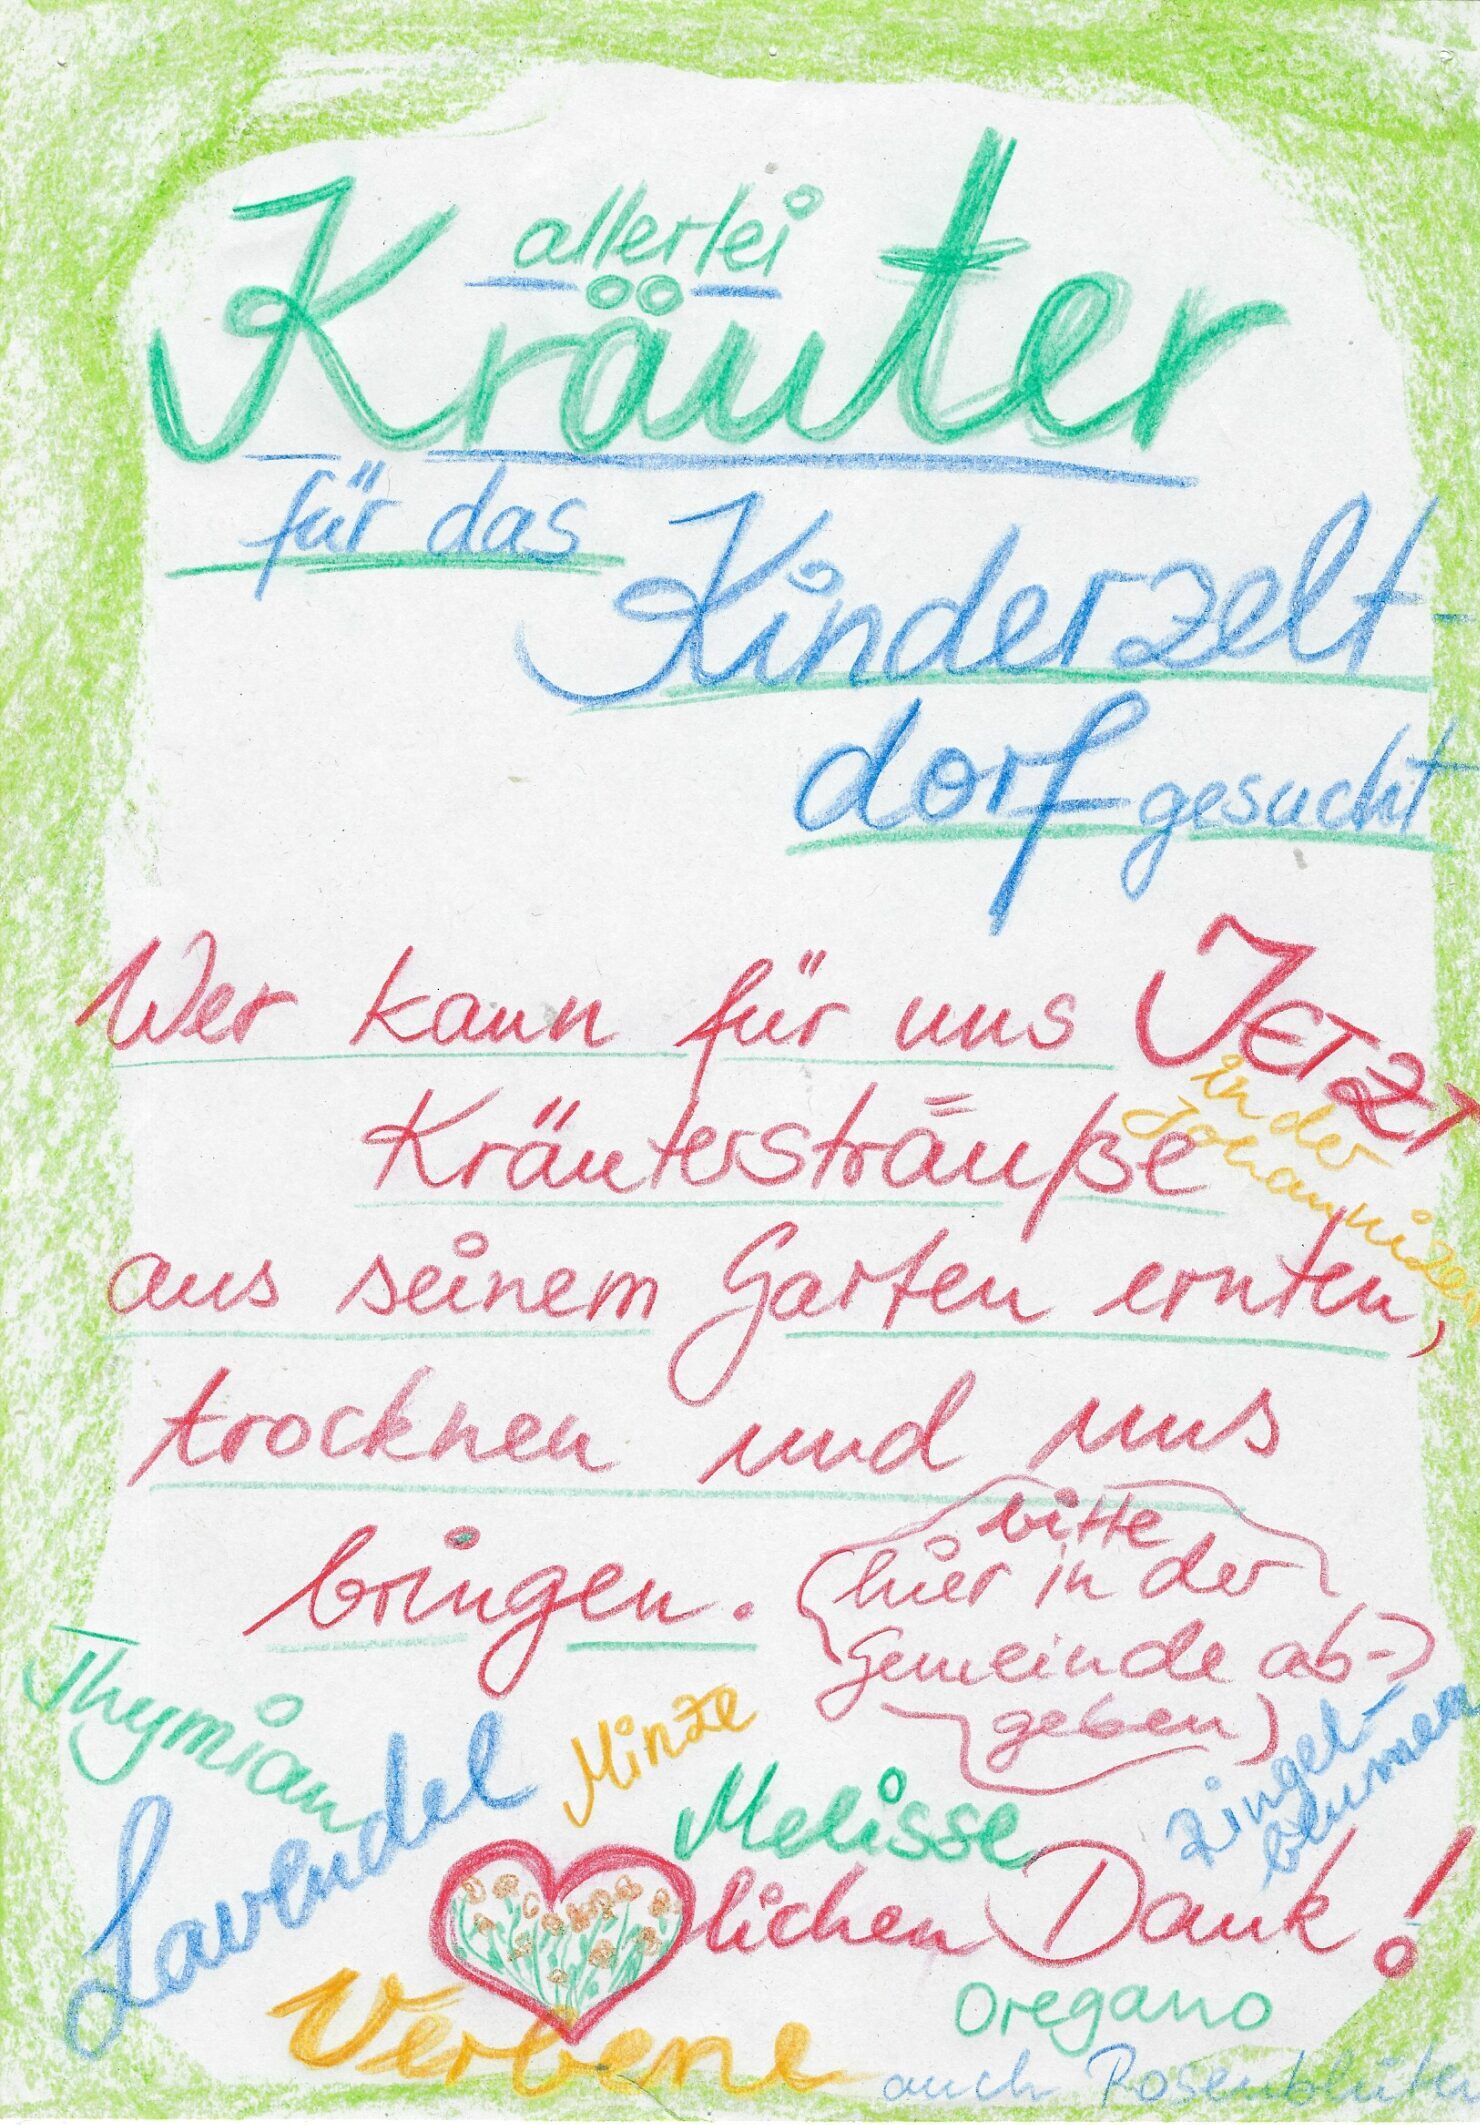 allerlei
Kräuter
für das
Kinderzelt-
dorf gesucht
Wer kann für uns JETZT
in der
Johannizeit
Kräutersträuße
aus seinem Garten ernten,
trocknen und uns
bringen. (bitte
hier in der
Gemeinde ab-
geben)
Thymian
Lavendel
Minze
Melisse
Zingel-
blumen
lichen Dank!
Verbene
Oregano
auch Rosenblüten